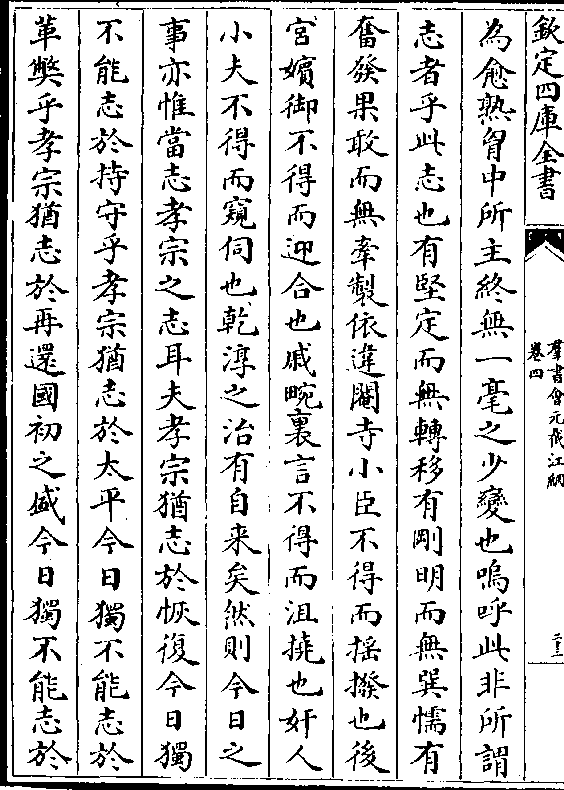 欽定四庫全書
羣書會元截江網
卷四
二十三
為愈熟胷中所主終無一毫之少變也嗚呼此非所謂
志者乎此志也有堅定而無轉移有剛明而無巽懦有
奮發果敢而無牽製依違閹寺小臣不得而揺撥也後
宮嬪御不得而迎合也戚畹裏言不得而沮撓也奸人
小夫不得而窺伺也乾淳之治有自来矣然則今日之
事亦惟當志孝宗之志耳夫孝宗猶志於恢復今日獨
不能志於持守乎孝宗猶志於太平今日獨不能志於
革弊乎孝宗猶志於再還國初之盛今日獨不能志於